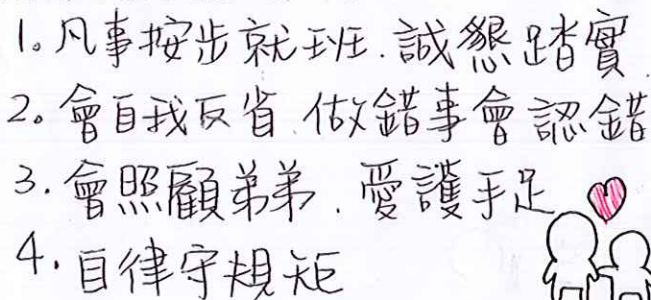 1。凡事按步就班.誠懇踏實
2。會自我反省.做錯事會認錯
3.會照顧弟弟.愛護手足
4.自律守規矩